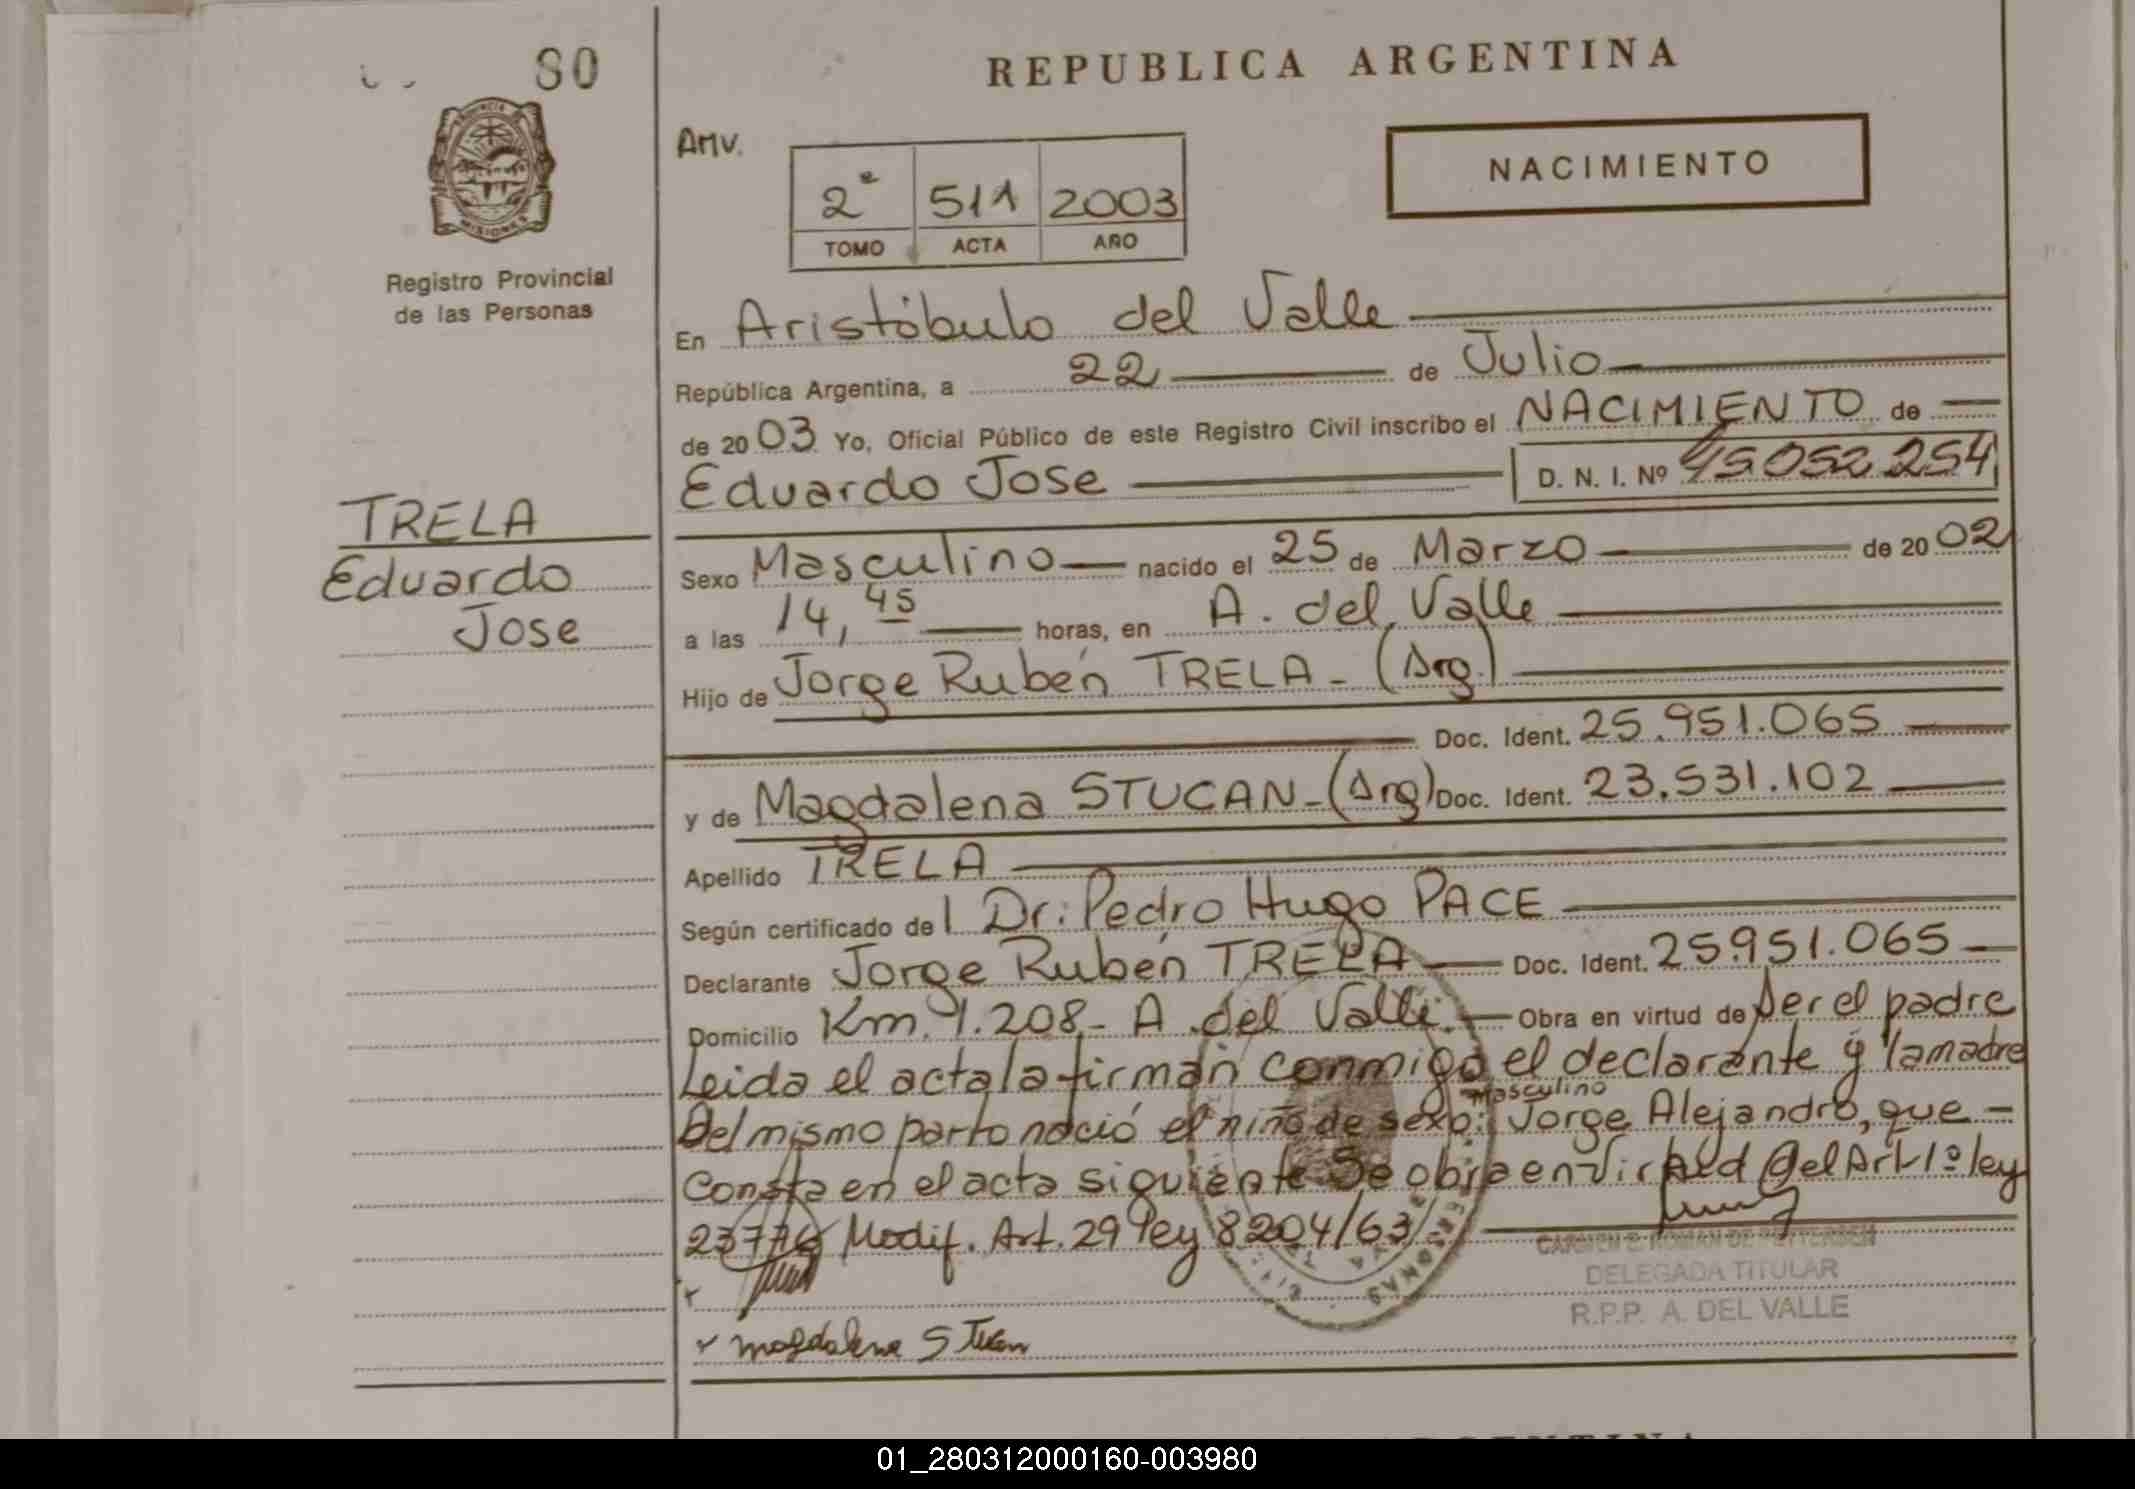 80
REPUBLICA ARGENTINA
NACIMIENTO
Ariv.
2º 511 2003
TOMO ACTA AÑO
PROVINCIA
MISIONES
Registro Provincial
de las Personas
TRELA
Eduardo
Jose
En Aristóbulo del Valle
República Argentina, a 22 de Julio
de 2003 Yo, Oficial Público de este Registro Civil inscribo el NACIMIENTO de
Eduardo Jose D. N. I. Nº 45052254
Sexo Masculino nacido el 25 de Marzo de 2002
a las 14,45 horas, en A. del Valle
Hijo de Jorge Rubén TRELA - (Arg.)
Doc. Ident. 25.951.065
y de Magdalena STUCAN - (Arg) Doc. Ident. 23.531.102
Apellido TRELA
Según certificado del Dr: Pedro Hugo PACE
Declarante Jorge Rubén TRELA Doc. Ident. 25951.065
Domicilio Km. 1.208 - A. del Valle. Obra en virtud de ser el padre
Leida el acta la firman conmigo el declarante y la madre
masculino
Del mismo parto nació el niño de sexo: Jorge Alejandro, que -
Consta en el acta siguiente Se obra en virtud del Art 1º ley
23776 Modif. Art. 29 ley 8204/63
CARMEN E. ROMAN DE PETTERSEN
DELEGADA TITULAR
R.P.P. A. DEL VALLE
Magdalena Stucan
01_280312000160-003980